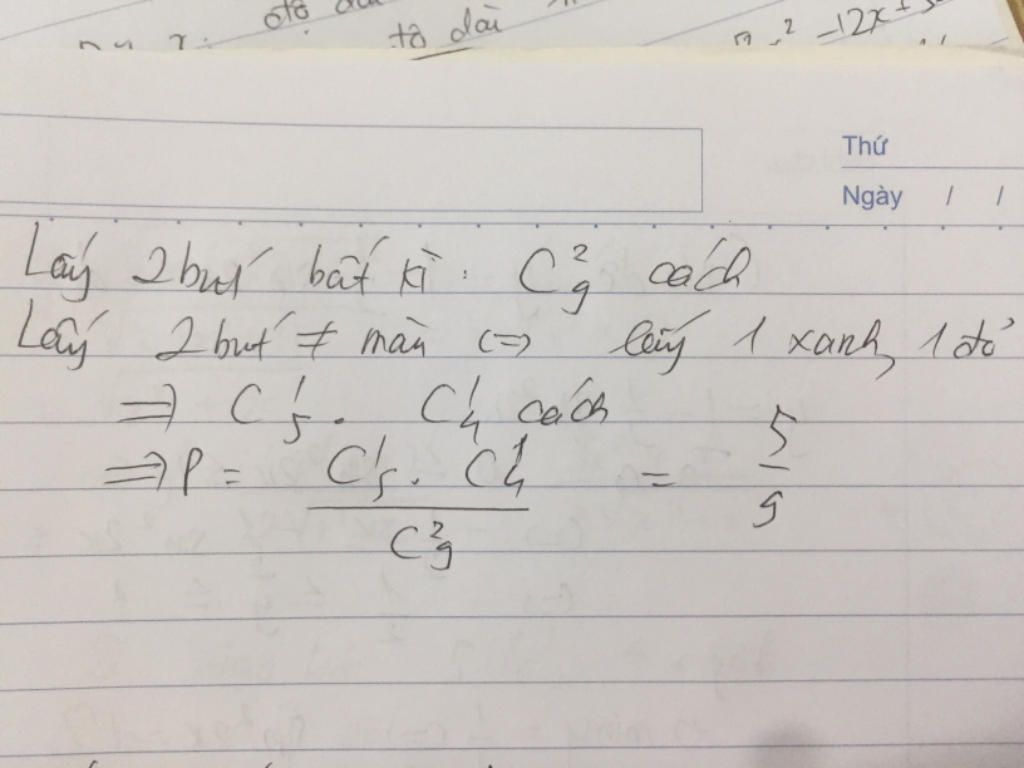 độ dài
-12x +
Thứ
Ngày / /
Lấy 2 bút bất kì : C²₉ cách
Lấy 2 bút ≠ màu <=> lấy 1 xanh, 1 đỏ
=> C¹₅ . C¹₄ cách
=> P = (C¹₅ . C¹₄) / C²₉ = 5/9